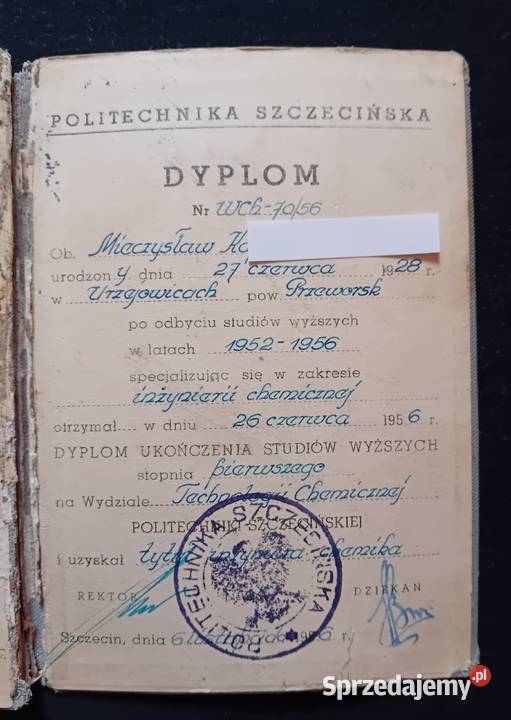 POLITECHNIKA SZCZECIŃSKA
DYPLOM
Nr WCh-70/56
Ob. Mieczysław
urodzony dnia 27 czerwca 1928 r.
w Urzejowicach pow. Przeworsk
po odbyciu studiów wyższych
w latach 1952-1956
specjalizując się w zakresie
inżynierii chemicznej
otrzymał w dniu 26 czerwca 1956 r.
DYPLOM UKOŃCZENIA STUDIÓW WYŻSZYCH
stopnia pierwszego
na Wydziale Technologii Chemicznej
POLITECHNIKI SZCZECIŃSKIEJ
i uzyskał tytuł inżyniera chemika
POLITECHNIKA SZCZECIŃSKA
REKTOR DZIEKAN
Szczecin, dnia 6 listopada 1956 r.
Sprzedajemy.pl